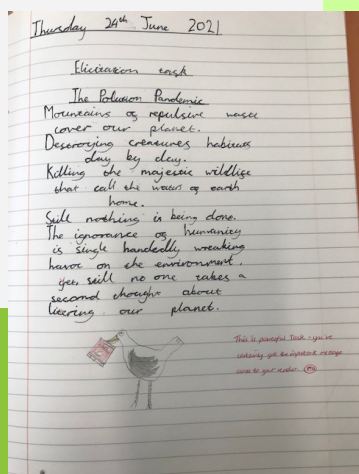 Thursday 24th June 2021
Elicitation task
The Pollution Pandemic
Mountains of repulsive waste
cover our planet.
Destroying creatures habitats
day by day.
Killing the majestic wildlife
that call the waters of earth
home.
Still nothing is being done.
The ignorance of humanity
is single handedly wreaking
havoc on the environment,
yet, still no one takes a
second thought about
litering our planet.
This is powerful - you've
certainly got the important message
across to your reader.